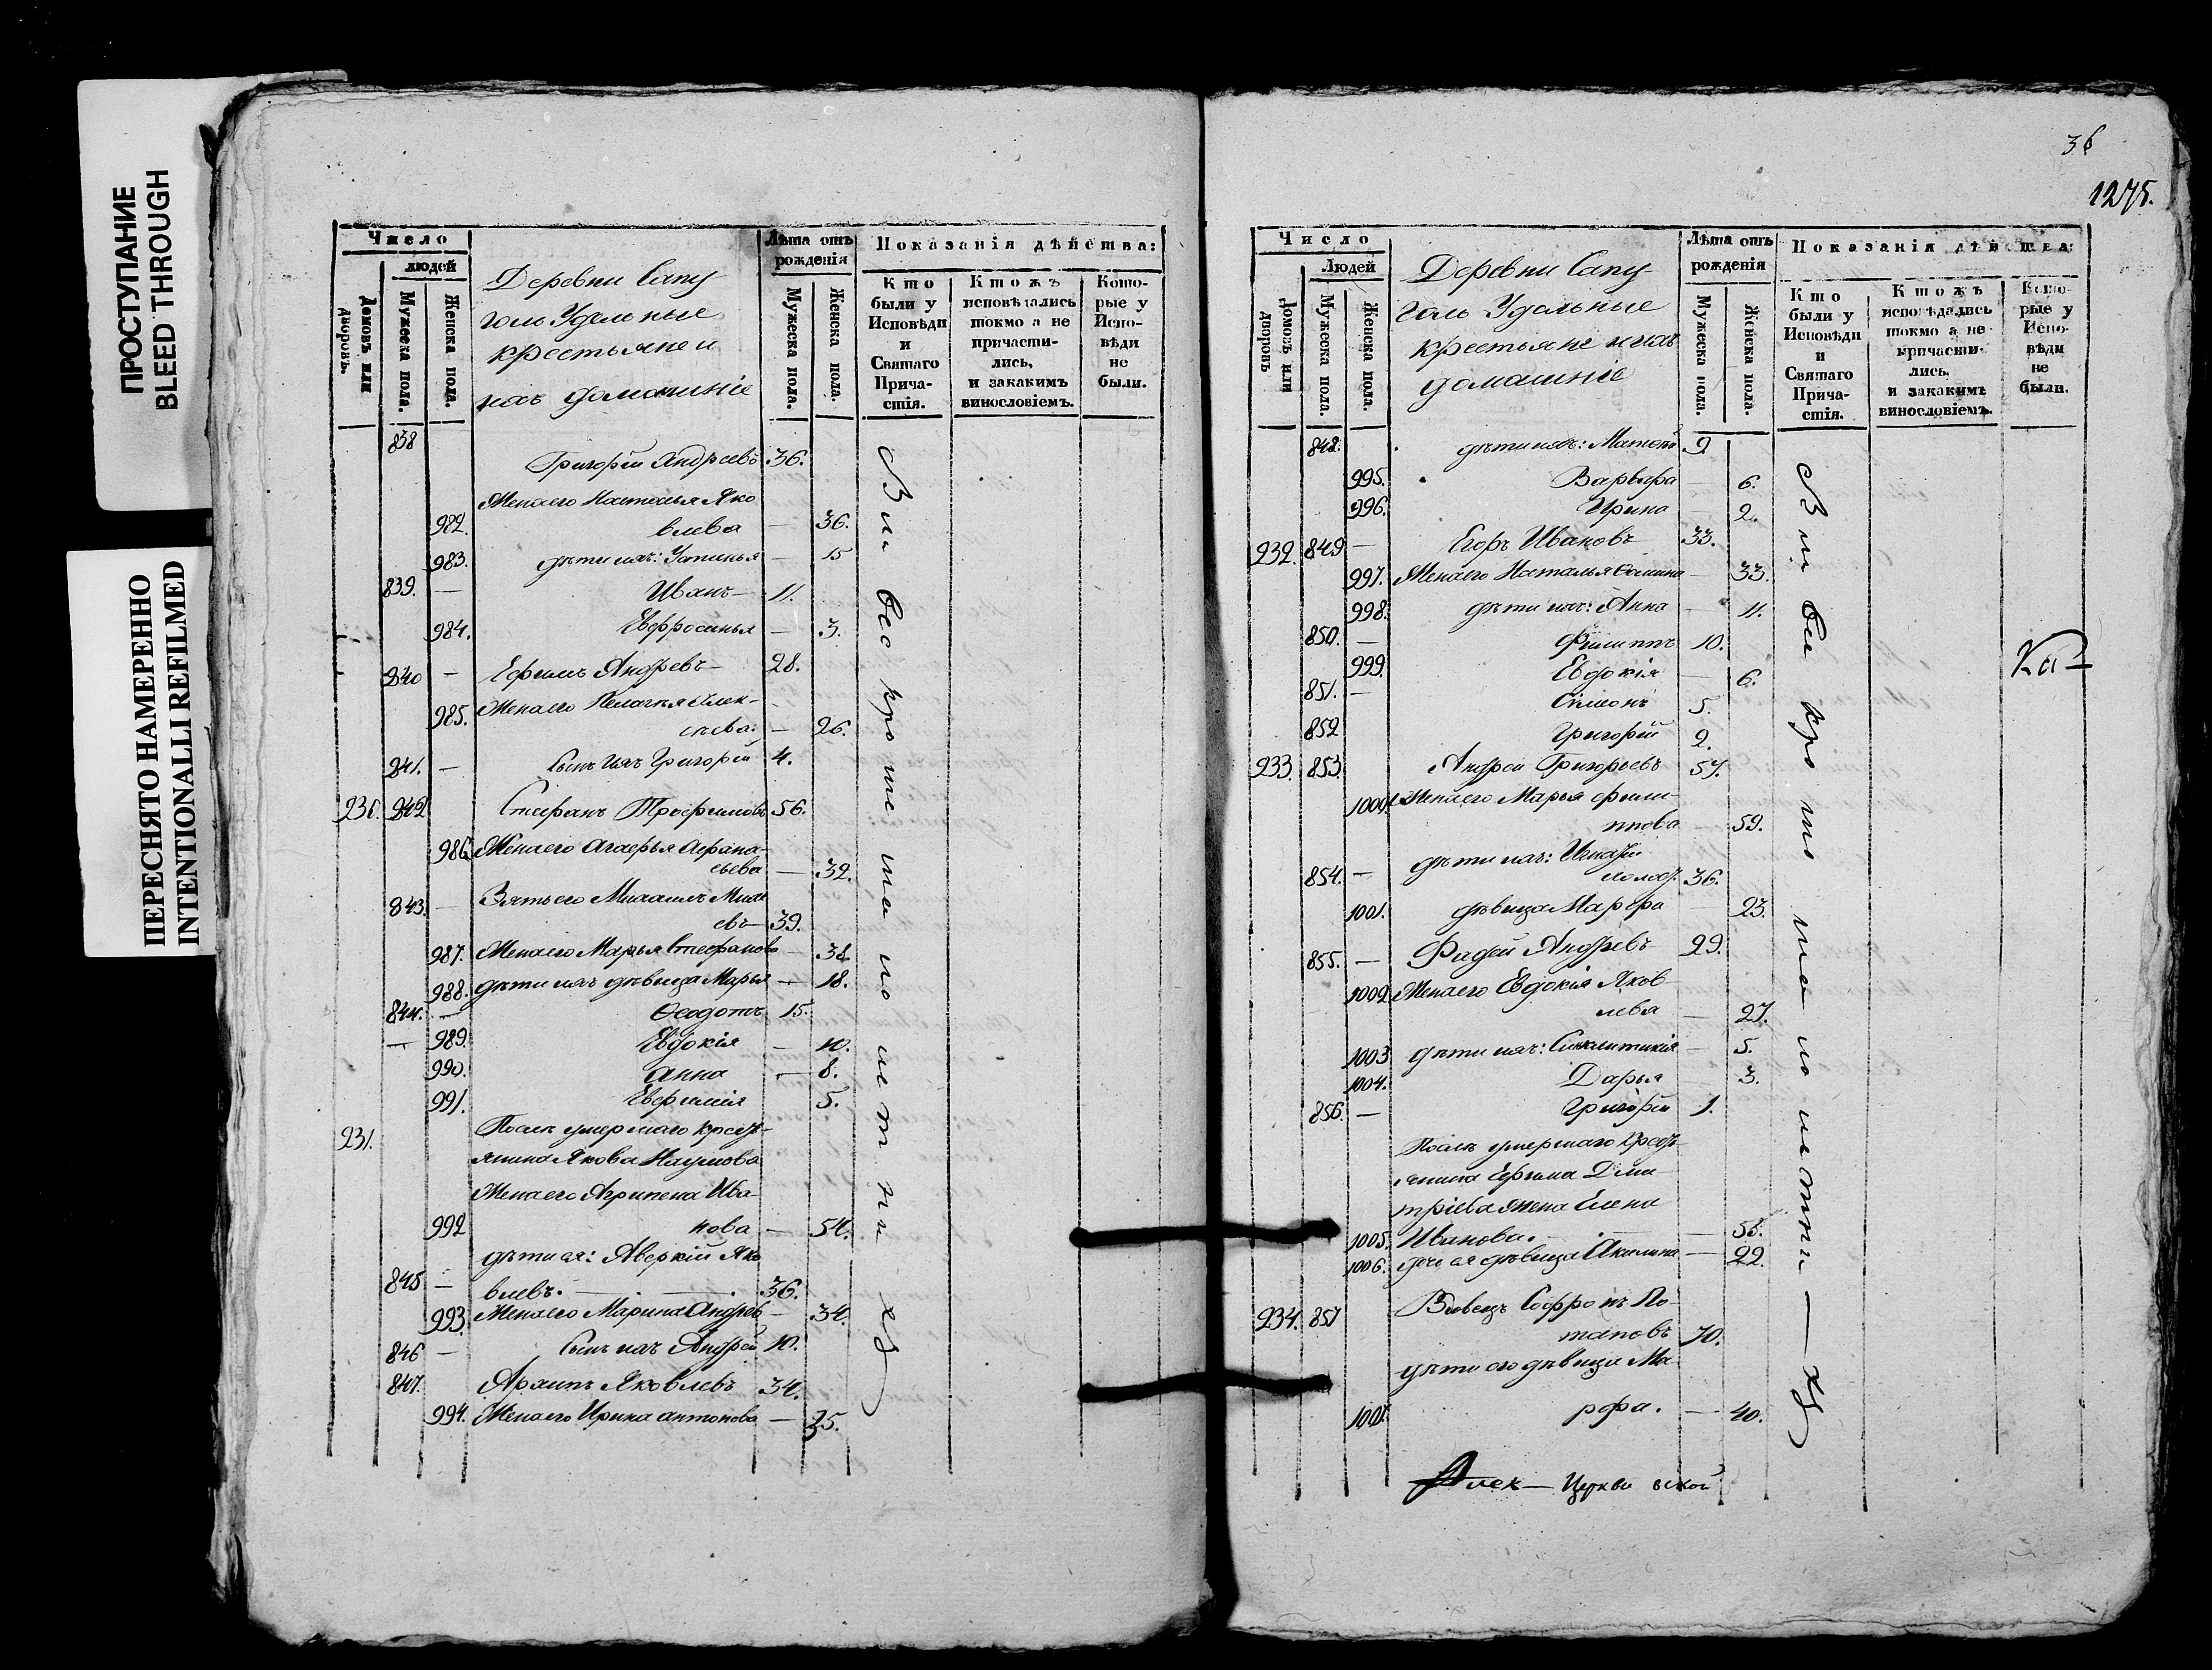 ПРОСТУПАНИЕ
BLEED THROUGH
ПЕРЕСНЯТО НАМЕРЕННО
INTENTIONALLI REFILMED
Число
людей
Домовъ или дворовъ.
Мужеска пола.
Женска пола.
Деревни Сапу
голь Удельные
крестьяне и
ихъ домашніе
Лѣта отъ рожденія
Мужеска пола.
Женска пола.
Показанія дѣйства:
Кто были у Исповѣди и Святаго Прича- стія.
Ктожъ исповѣдались токмо а не причасти- лись, и закакимъ винословіемъ.
Кото- рые у Испо- вѣди не были.
838 Григорій Андреевъ 36.
Жена его Наталья Яко
982. влева — 36.
983. дѣти ихъ: Устинья — 15
839. — Иванъ — 11.
984. Евфросинья — 3.
840 — Ефимъ Андревъ — 28.
985. Жена его Пелагея Алек-
сѣева. — 26.
841. — Сынъ ихъ Григорій 4.
230. 842 Стефанъ Трофимовъ 56.
986. Жена его Агафья Афана-
сьева — 32.
843. — Зять его Михаилъ
евъ — 39.
987. Жена его Марья Стефанова — 38.
988. дѣти ихъ дѣвица Марья — 18.
844. — Ѳеодотъ 15.
— 989. Евдокія — 10.
990. Анна — 8.
991. Евфимія 5.
231. Послѣ умершаго кресть-
янина Якова Наумова
Жена его Агрипена Ива-
992 нова — 54.
дѣти ея: Аверкій Яко
845 — влевъ. 36.
993. Жена его Марина Андрев — 34.
846 — Сынъ ихъ Андрей 10.
847. Архипъ Яковлевъ 34.
994. Жена его Ирина Антонова — 35.
36
1275.
Число
Людей
Домовъ или дворовъ
Мужеска пола.
Женска пола.
Деревни Сапу
голь Удельные
крестьяне и ихъ
домашніе
Лѣта отъ рожденія
Мужеска пола.
Женска пола.
Показанія дѣйства:
Кто были у Исповѣди и Святаго Прича- стія.
Ктожъ исповѣдались токмо а не причасти- лись, и закакимъ винословіемъ.
Кото- рые у Испо- вѣди не были.
848. дѣти ихъ: Матвѣй 9
995. Варвара — 6.
996. Ирина — 2.
232. 849 — Егоръ Ивановъ 33.
997. Жена его Наталья — 33.
998. дѣти ихъ: Анна — 11.
850. — Филиппъ 10.
999. Евдокія — 6.
851. — Симеонъ 5.
852 Григорій 2.
233. 853. Андрей Григорьевъ 57.
1000. Жена его Марья Фили-
ппова — 59.
дѣти ихъ: Игнатій
854. — холост. 36.
1001. дѣвица Марфа — 23.
855. — Фадей Андревъ 29.
1002. Жена его Евдокія Яков-
лева — 27.
1003 дѣти ихъ: Синклитикія — 5.
1004. Дарья — 3.
856. — Григорій 1.
Послѣ умершаго кресть-
янина Ефима Дми-
тріева жена Елена
1005. Иванова. — 55.
1006. дочь ея дѣвица Акилина — 22.
234. 857 Вдовецъ Софронъ По-
таповъ 70.
дѣти его дѣвица Ма-
1007. рфа. — 40.
Церкви